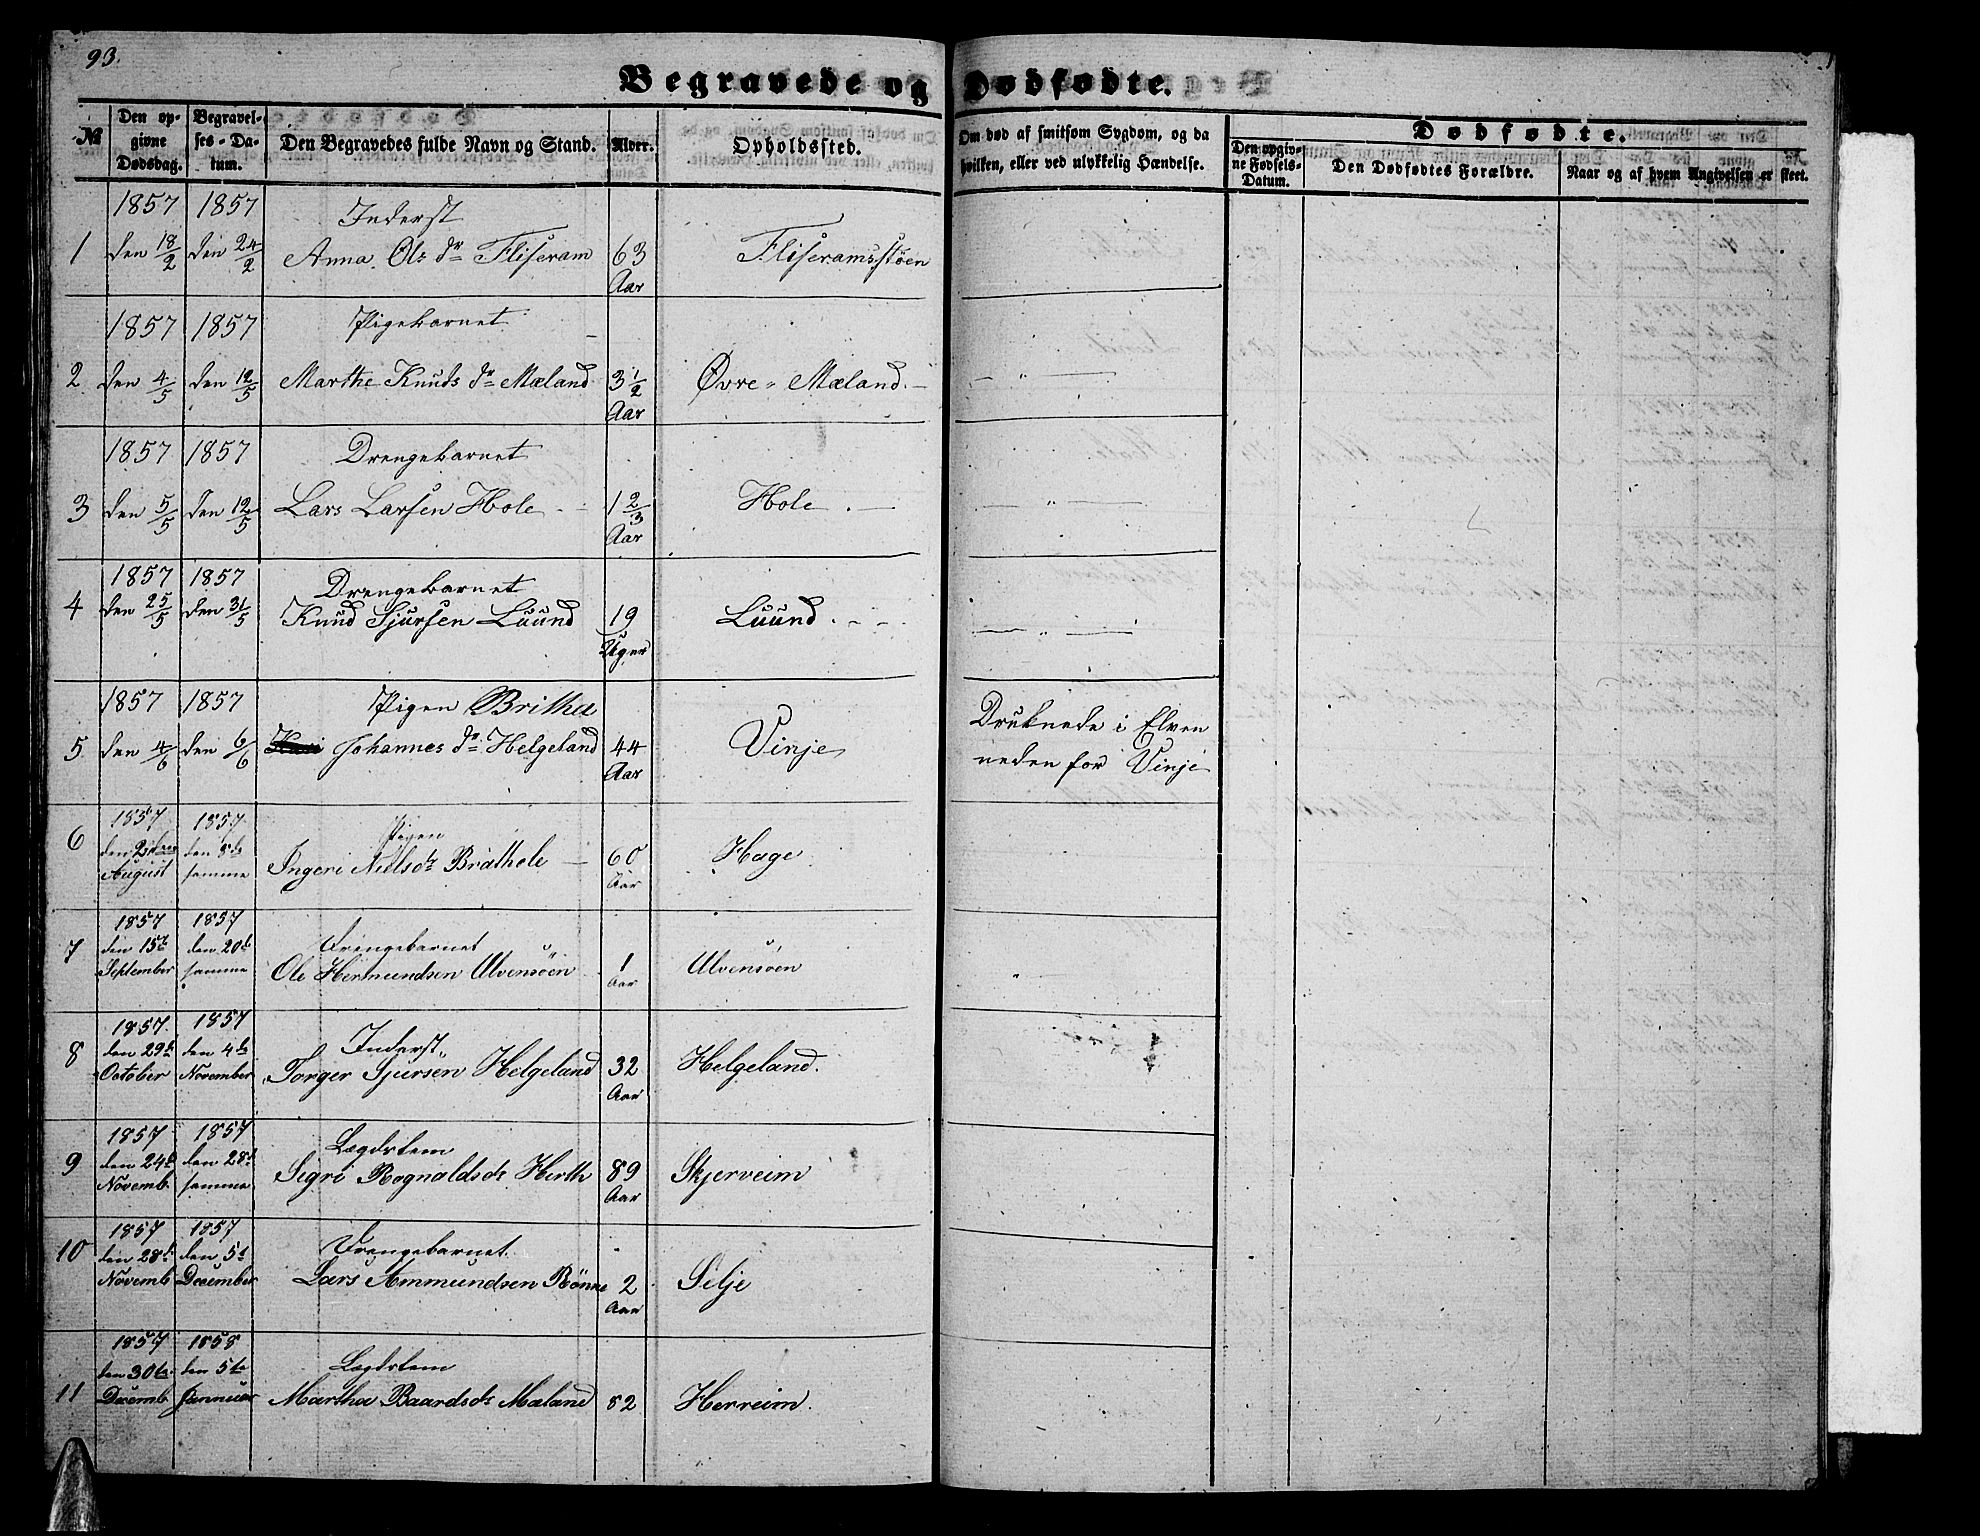 93.
Begravede og Dødfødte.
№
Den opgivne Dødsdag.
Begravelses-Datum.
Den Begravedes fulde Navn og Stand.
Alder.
Opholdssted.
Om død af smitsom Sygdom, og da hvilken, eller ved ulykkelig Hændelse.
Dødfødte.
Den opgivne Fødsels-Datum.
Den Dødfødtes Forældre.
Naar og af hvem Angivelsen er skeet.
1857 1857 Inderst
1 den 18/2 den 24/2 Anna Ols dr Fliseram 63 Fliseramsstøen
Aar
1857 1857 Pigebarnet
2 den 4/5 den 12/5 Marthe Knuds dr Mæland 3 1/2 Øvre - Mæland. — — " —
Aar
1857 1857 Drengebarnet
3 den 5/5 den 12/5 Lars Larsen Hole 1 2/3 Hole. — — " —
Aar
1857 1857 Drengebarnet
4 den 25/5 den 31/5 Knud Sjursen Luund 19 Luund. — " —
Uger
1857 1857 Pigen Britha Druknede i Elven
5 den 4/6 den 6/6 Johannes dr Helgeland 44 Vinje neden for Vinje
Aar
1857 1857 Pigen
6 den den 8de Ingeri Nielsdr Brathole 60 Hage.
August samme Aar
1857 1857 Drengebarnet
7 den 15de den 20de
September samme Ole Hermundsen Ulvensøen 1 Ulvensøen
Aar
1857. 1857 Inderst
8 den 29de den 4de
October November Torger Sjursen Helgeland 32 Helgeland.
Aar
1857 1857 Lægdslem
9 den 24de den 28de
Novemb. samme Sigri Rognaldsdr Herth 89 Skjerveim
Aar
1857 1857 Drengebarnet.
10 den 28de den 5te
Novemb. December Lars Ammundsen Rønne 2 Selje
Aar
1857 1858 Lægdslem
den 30te den 5te
11 Decemb. Januar Martha Baardsdr Mæland 82 Herreim.